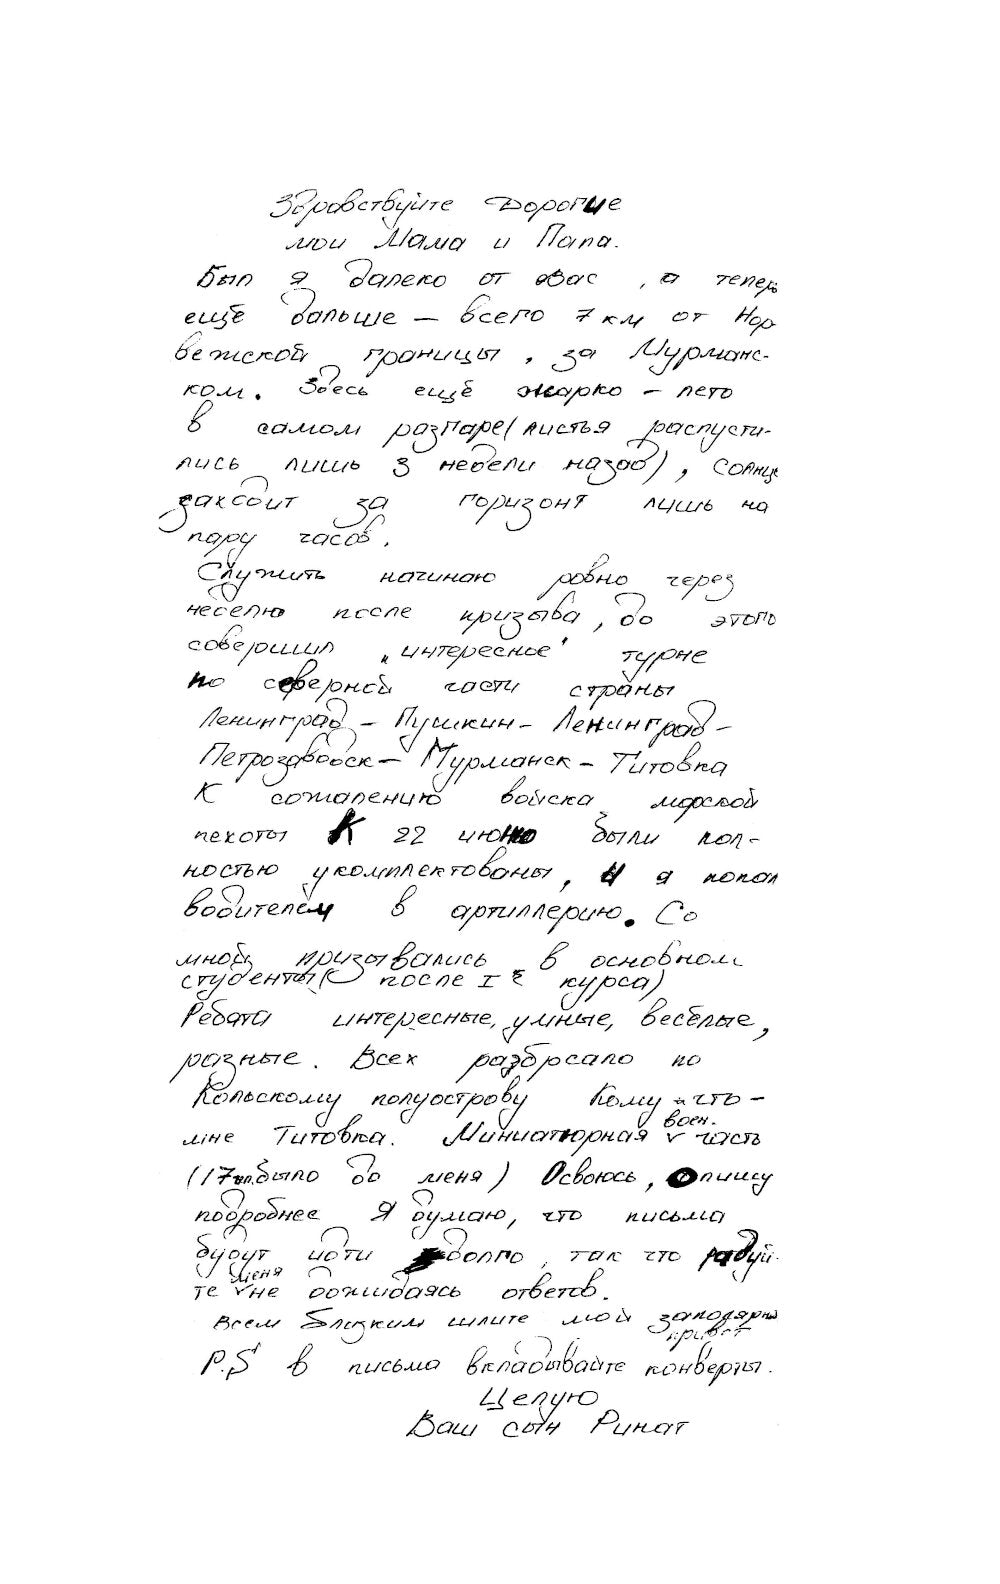 Здравствуйте Дорогие
мои Мама и Папа.
Был я далеко от вас, а теперь
ещё дальше — всего 7 км от Нор
вежской границы, за Мурманс-
ком. Здесь ещё жарко – лето
в самом разгаре (листья распусти-
лись лишь 3 недели назад), солнце
заходит за горизонт лишь на
пару часов.
Служить начинаю ровно через
неделю после призыва, до этого
совершил „интересное" турне
по северной части страны
Ленинград – Пушкин – Ленинград –
Петрозаводск – Мурманск – Титовка
К сожалению войска морской
пехоты К 22 июню были пол-
ностью укомплектованы, и я попал
водителем в артиллерию. Со
мной призывались в основном
студенты (после I курса)
Ребята интересные, умные, весёлые,
разные. Всех разбросало по
Кольскому полуострову Кому – что –
мне Титовка. Миниатюрная воен. часть
(17 чел. было до меня) Освоюсь, опишу
подробнее Я думаю, что письма
будут идти долго, так что радуй-
те меня не дожидаясь ответов.
Всем близким шлите мой заполярный
привет
P.S в письма вкладывайте конверты.
Целую
Ваш сын Ринат